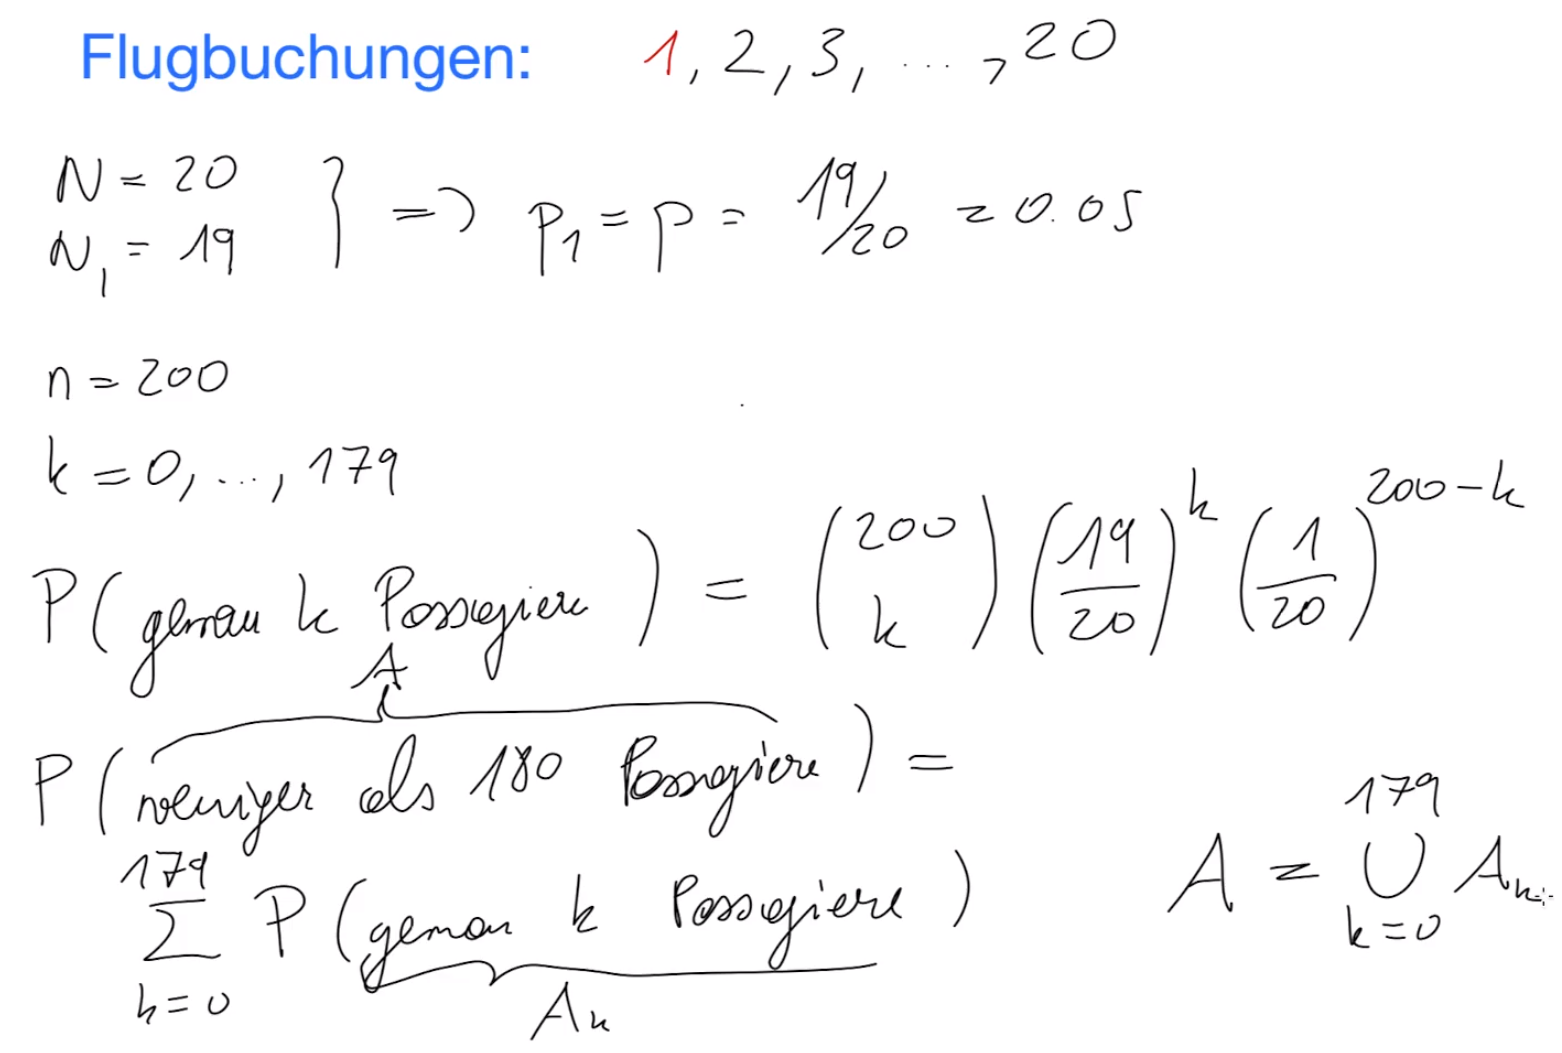 Flugbuchungen: 1, 2, 3, ..., 20
N = 20
N₁ = 19 } => p₁ = p = 19/20 = 0.05
n = 200
k = 0, ..., 179
P( genau k Passagiere ) = (200 k) (19/20)^k (1/20)^(200-k)
A
P( weniger als 180 Passagiere ) =
179
Σ P( genau k Passagiere )
k=0
A_k
179
A = ∪ A_k
k=0